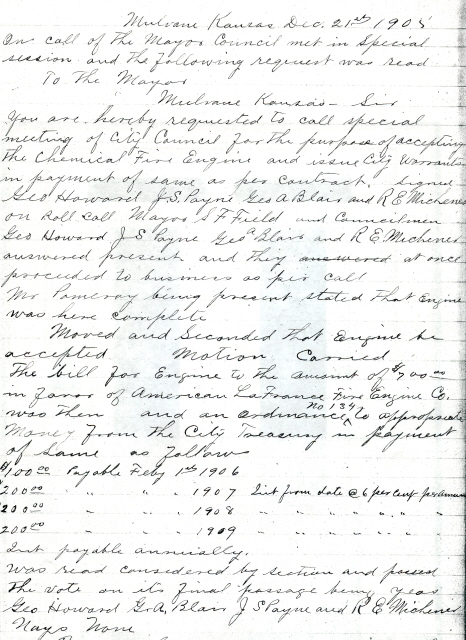 Mulvane Kansas Dec. 21st 1905
On call of the Mayor Council met in Special
session and the following request was read
To The Mayor
Mulvane Kansas - Sir
You are hereby requested to call special
meeting of City Council for the purpose of accepting
the Chemical Fire Engine and issue City Warrants
in payment of same as per contract. signed
Geo Howard J.S. Payne Geo A Blair and R E Michener
on Roll Call Mayor S F Field and Councilmen
Geo Howard J S Payne Geo A Blair and R E Michener
answered present and they answered at once
proceeded to business as per call
Mr Pomeroy being present stated that Engine
was here complete
Moved and Seconded that Engine be
accepted Motion Carried
The bill for Engine to the amount of $700.00
in favor of American LaFrance Fire Engine Co.
was then and an ordinance No 139 to appropriate
Money from the City Treasury in payment
of Same as follows
$100.00 Payable Feby 1st 1906
200.00 " " " 1907 Int from date @ 6 per cent per annum
200.00 " " " 1908 " " " " " "
200.00 " " " 1909 " " " " " "
Int payable annually.
was read considered by section and passed
The vote on its final passage being yeas
Geo Howard G.A. Blair J S Payne and R E Michener
Nays None